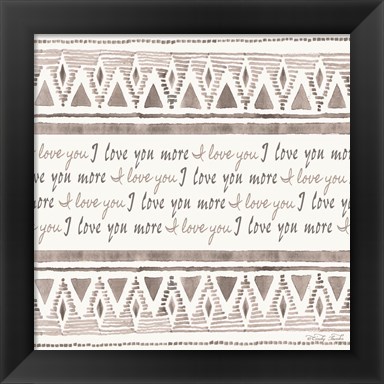 I love you I love you more I love you I love you mor
ve you more I love you I love you more I love you
ove you I love you more I love you I love you more
you I love you more I love you I love you more